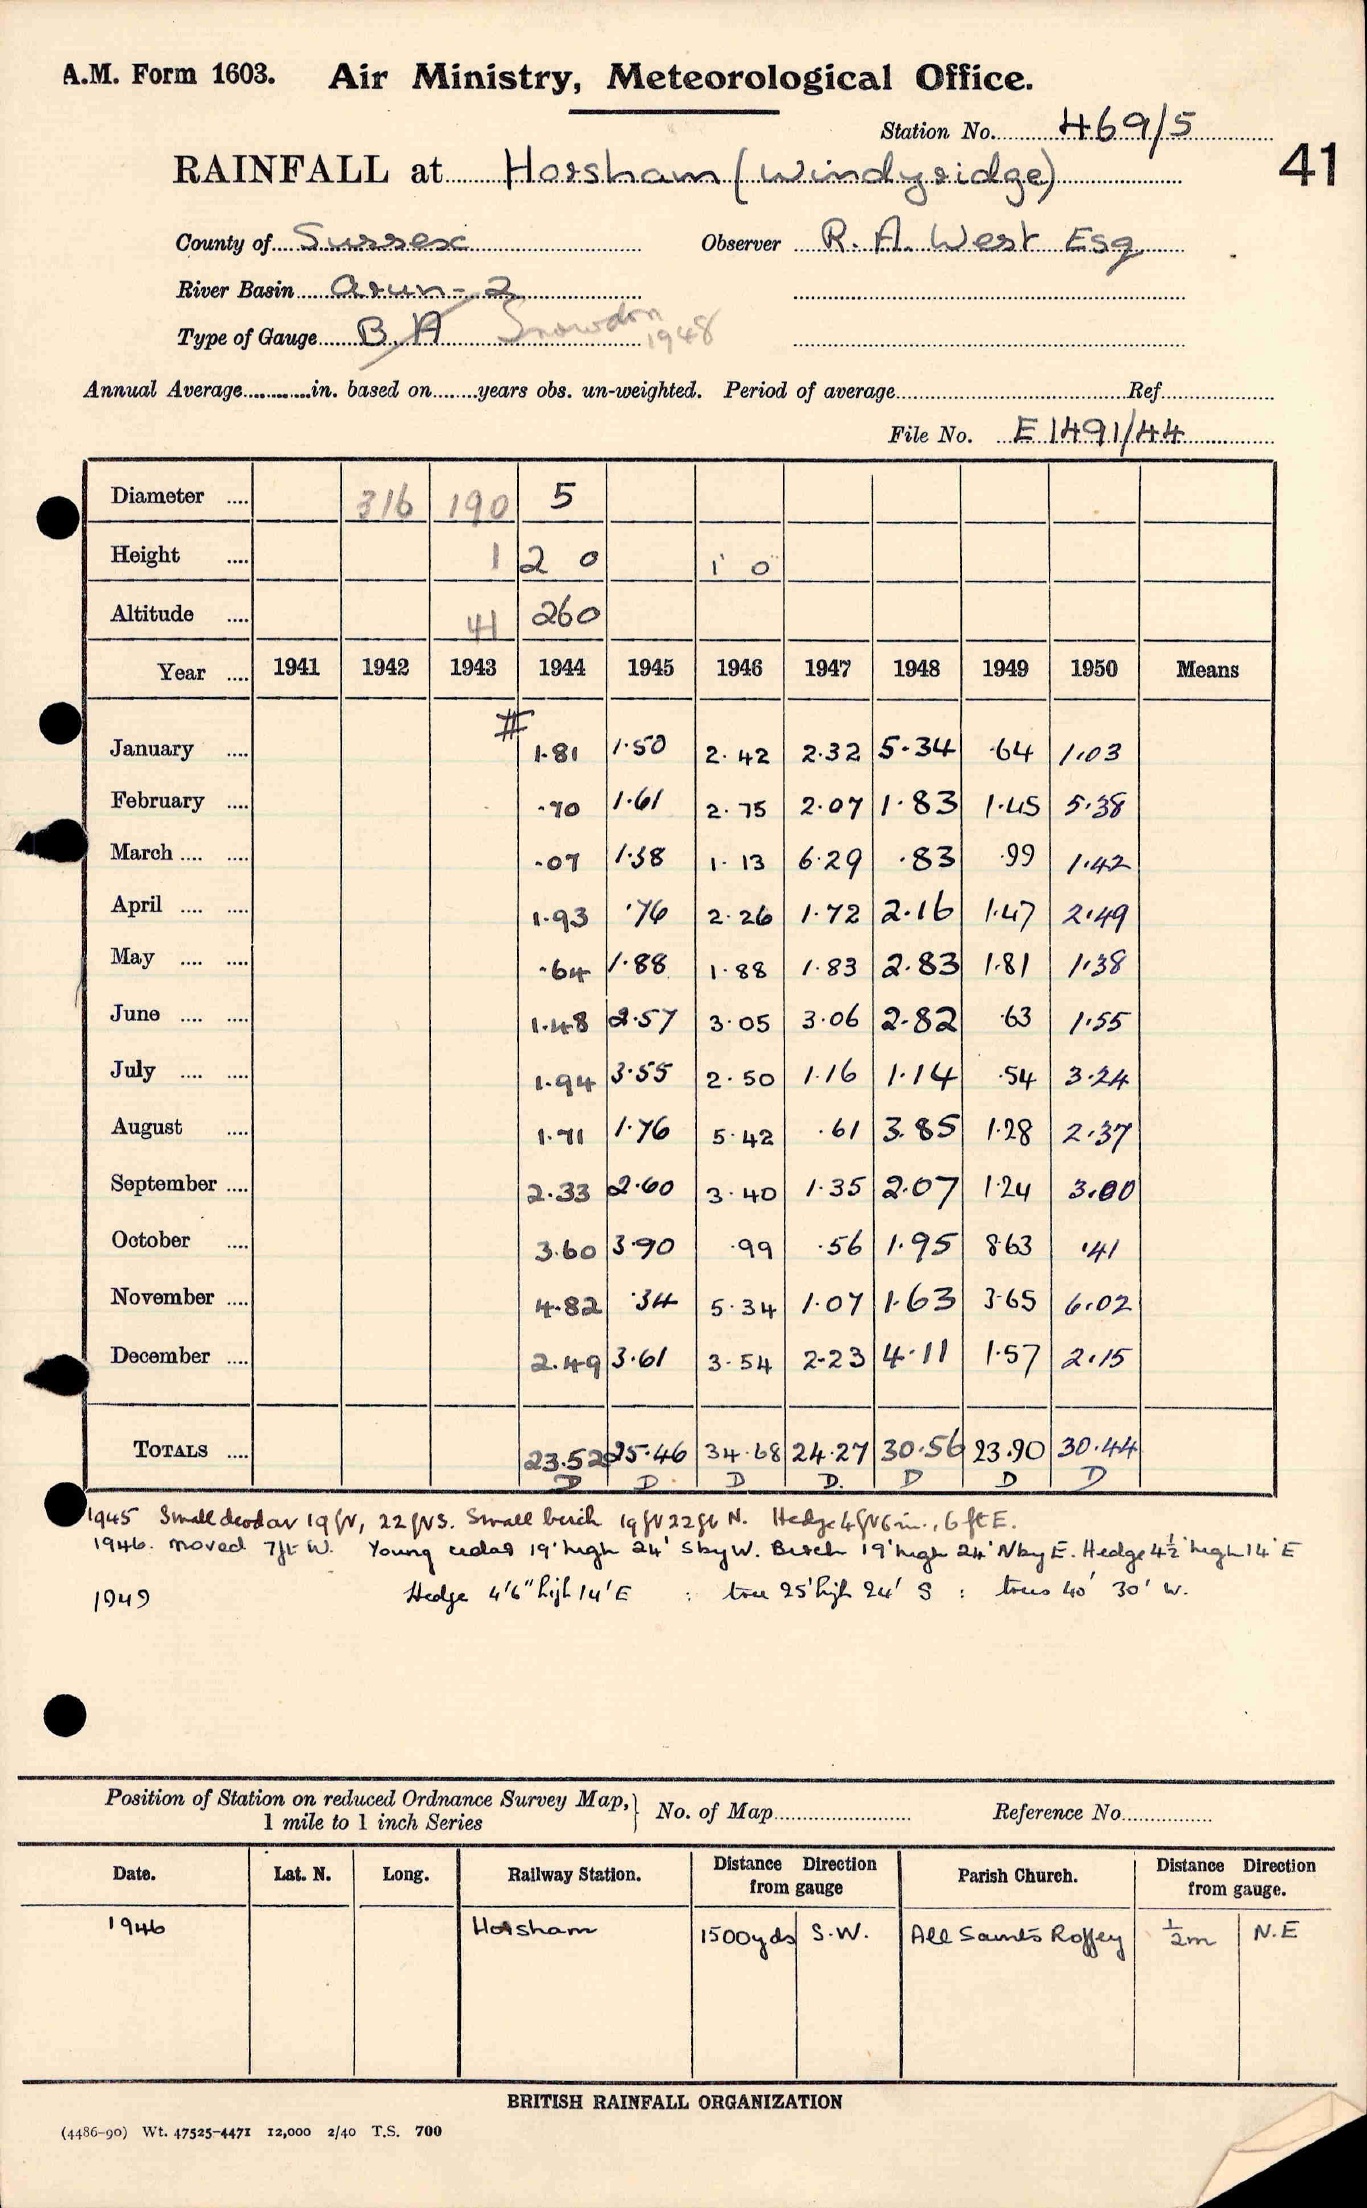 A.M. Form 1603. Air Ministry, Meteorological Office.
Station No. 469/5
41
RAINFALL at Horsham (Windyridge)
County of Sussex Observer R. A. West Esq
River Basin Arun - 2
Type of Gauge B. A Snowdon 1948
Annual Average............in. based on........years obs. un-weighted. Period of average............Ref............
File No. E 1491/44
Diameter .... 316 190 5
Height .... 1 2 0 1 0
Altitude .... 41 260
Year .... 1941 1942 1943 1944 1945 1946 1947 1948 1949 1950 Means
January .... # 1.81 1.50 2.42 2.32 5.34 .64 1.03
February .... .70 1.61 2.75 2.07 1.83 1.45 5.38
March .... .... .07 1.38 1.13 6.29 .83 .99 1.42
April .... .... 1.93 .76 2.26 1.72 2.16 1.47 2.49
May .... .... .64 1.88 1.88 1.83 2.83 1.81 1.38
June .... .... 1.48 2.57 3.05 3.06 2.82 .63 1.55
July .... .... 1.94 3.55 2.50 1.16 1.14 .54 3.24
August .... 1.71 1.76 5.42 .61 3.85 1.28 2.37
September .... 2.33 2.60 3.40 1.35 2.07 1.24 3.00
October .... 3.60 3.90 .99 .56 1.95 8.63 .41
November .... 4.82 .34 5.34 1.07 1.63 3.65 6.02
December .... 2.49 3.61 3.54 2.23 4.11 1.57 2.15
TOTALS .... 23.52 25.46 34.68 24.27 30.56 23.90 30.44
D D D D. D D D
1945 Small deodar 19ft, 22ft S. Small birch 19ft 22ft N. Hedge 4ft 6in., 6ft E.
1946. moved 7ft W. Young cedar 19' high 24' S by W. Birch 19' high 24' N by E. Hedge 4½' high 14' E
1949 Hedge 4'6" high 14' E : tree 25' high 24' S : trees 40' 30' W.
Position of Station on reduced Ordnance Survey Map, } No. of Map............ Reference No............
1 mile to 1 inch Series
Date. Lat. N. Long. Railway Station. Distance from gauge Direction Parish Church. Distance from gauge. Direction
1946 Horsham 1500yds S.W. All Saints Roffey ½m N.E
BRITISH RAINFALL ORGANIZATION
(4486-90) Wt. 47525-4471 12,000 2/40 T.S. 700